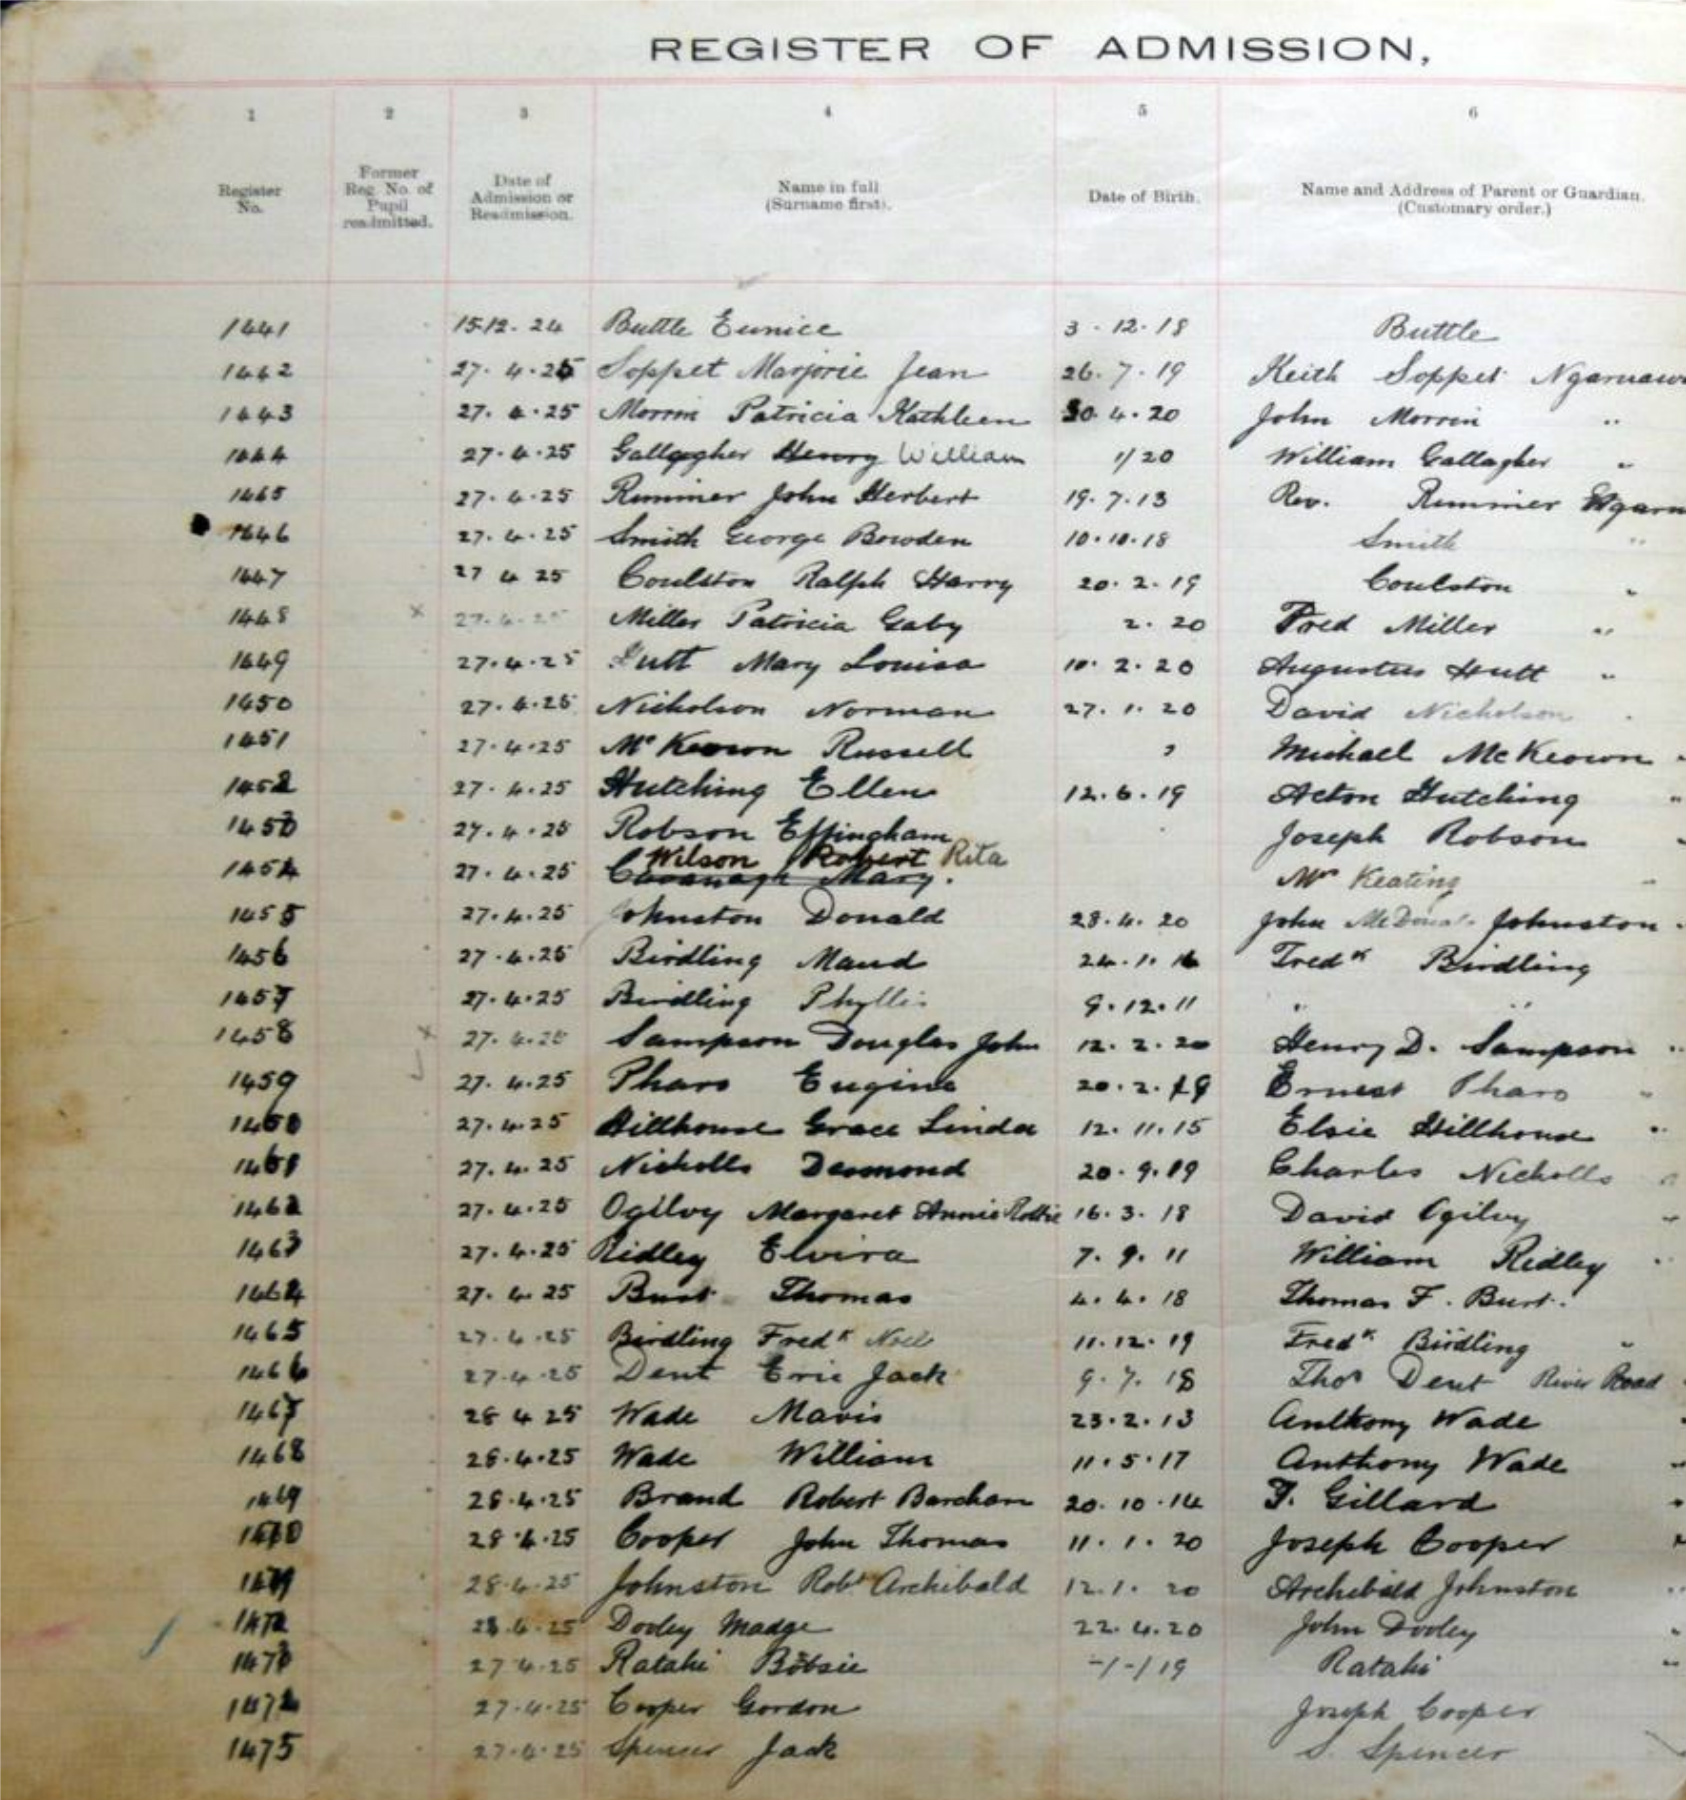 REGISTER OF ADMISSION,
1 2 3 4 5 6
Register No. Former Reg. No. of Pupil readmitted. Date of Admission or Readmission. Name in full (Surname first). Date of Birth. Name and Address of Parent or Guardian. (Customary order.)
1441 15.12.24 Buttle Eunice 3.12.18 Buttle
1442 27.4.25 Soppet Marjorie Jean 26.7.19 Keith Soppet
1443 27.4.25 Morrin Patricia Kathleen 30.4.20 John Morrin "
1444 27.4.25 Gallagher Henry William 1/20 William Gallagher "
1445 27.4.25 Rimmer John Herbert 19.7.13 Rev. Rimmer
1446 27.4.25 Smith George Bowden 10.10.18 Smith "
1447 27 4 25 Coulston Ralph Harry 20.2.19 Coulston "
1448 x 27.4.25 Miller Patricia Gaby 2.20 Fred Miller "
1449 27.4.25 Hutt Mary Louisa 10.2.20 Augustus Hutt "
1450 27.4.25 Nicholson Norman 27.1.20 David Nicholson
1451 27.4.25 McKeown Russell Michael McKeown
1452 27.4.25 Hutching Ellen 12.6.19 Acton Hutching "
1453 27.4.25 Robson Effingham Joseph Robson
Wilson Robert Rita
1454 27.4.25 Cavanagh Mary. Keating
1455 27.4.25 Johnston Donald 28.4.20 John Johnston
1456 27.4.25 Birdling Maud 24.1.16 Fredk Birdling
1457 27.4.25 Birdling Phyllis 9.12.11 " "
1458 x 27.4.25 Sampson Douglas John 12.2.20 Henry D. Sampson "
1459 27.4.25 Pharo Eugine 20.2.19 Ernest Pharo "
1460 27.4.25 Hillhouse Grace Linda 12.11.15 Elsie Hillhouse "
1461 27.4.25 Nicholls Desmond 20.9.19 Charles Nicholls
1462 27.4.25 Ogilvy Margaret Annie 16.3.18 David Ogilvy "
1463 27.4.25 Ridley Elvira 7.9.11 William Ridley
1464 27.4.25 Burt Thomas 4.4.18 Thomas F. Burt.
1465 27.4.25 Birdling Fredk Noel 11.12.19 Fredk Birdling "
1466 27.4.25 Dent Eric Jack 9.7.18 Thos Dent River Road
1467 28 4 25 Wade Mavis 23.2.13 Anthony Wade
1468 28.4.25 Wade William 11.5.17 Anthony Wade
1469 28.4.25 Brand Robert Barcham 20.10.14 F. Gillard
1470 28.4.25 Cooper John Thomas 11.1.20 Joseph Cooper
1471 28.4.25 Johnston Robt Archibald 12.1.20 Archibald Johnston
1472 28.4.25 Dooley Madge 22.4.20 John Dooley
1473 27.4.25 Rataki Bobsie -/-/19 Rataki "
1474 27.4.25 Cooper Gordon Joseph Cooper
1475 27.4.25 Spencer Jack S. Spencer